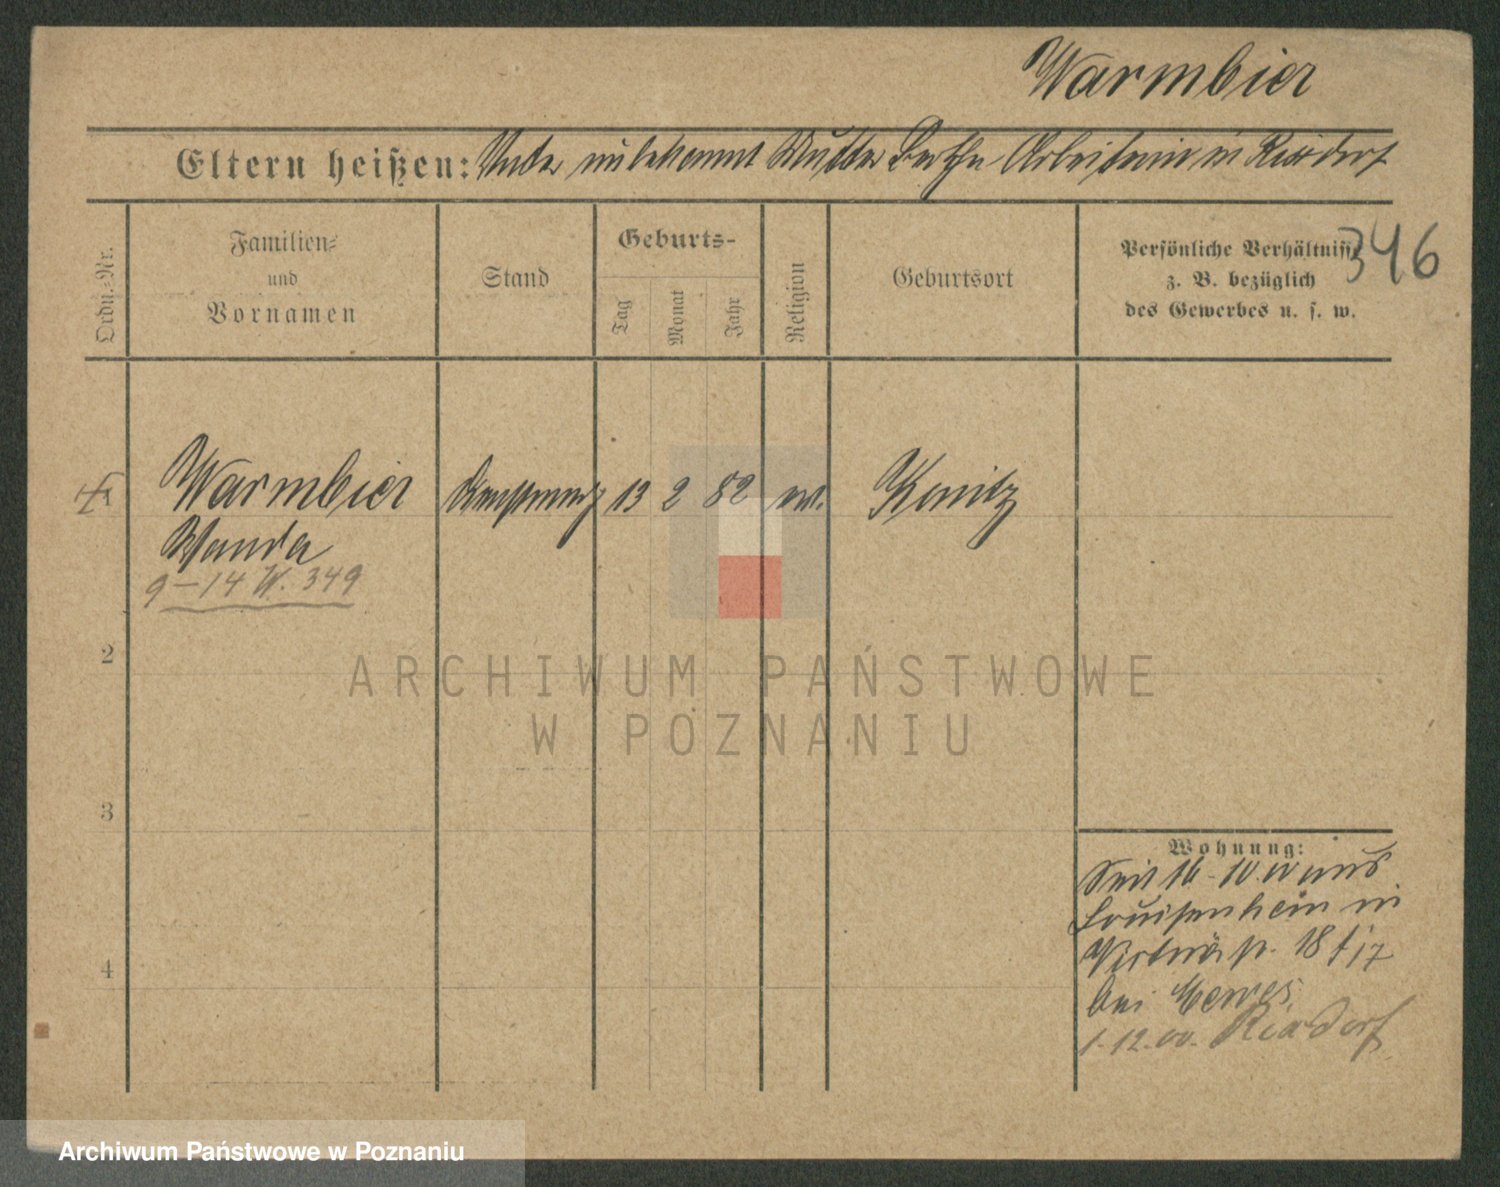 Warmbier
Eltern heißen: Vater unbekannt Mutter Bertha Arbeiterin in Rixdorf
Ordn.-Nr.
Familien-
und
Vornamen
Stand
Geburts-
Tag
Monat
Jahr
Religion
Geburtsort
Persönliche Verhältniss
z. B. bezüglich
des Gewerbes u. s. w.
346
1 Warmbier 13 2 82 ev. Konitz
Wanda
9-14 W. 349
2
3
4
Wohnung:
Seit 16-10.00 aus
Louisenhain in
18
bei
1.12.00. Rixdorf
ARCHIWUM PAŃSTWOWE
W POZNANIU
Archiwum Państwowe w Poznaniu